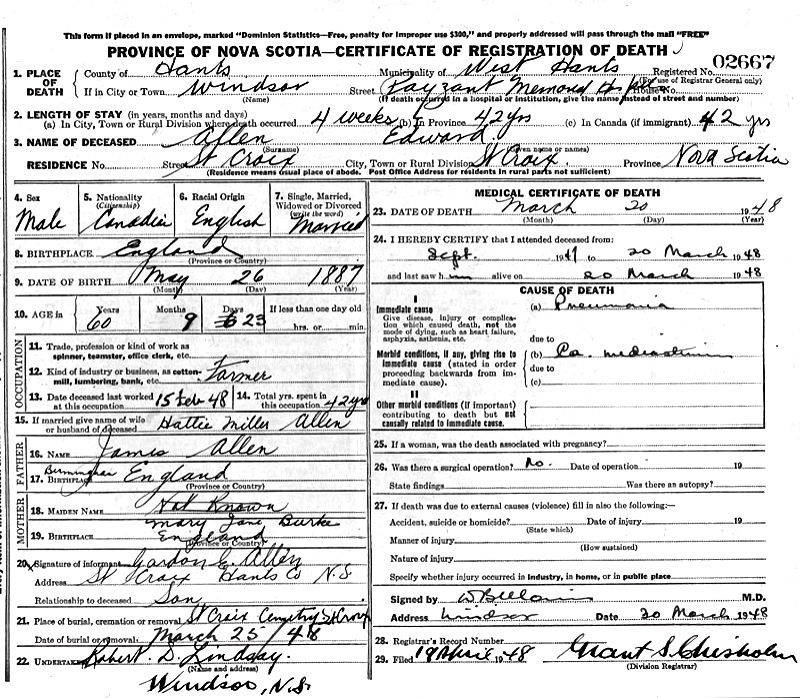 This form if placed in an envelope, marked "Dominion Statistics—Free, penalty for improper use $300," and properly addressed will pass through the mail "FREE"
PROVINCE OF NOVA SCOTIA—CERTIFICATE OF REGISTRATION OF DEATH
02667
1. PLACE OF DEATH County of Hants Municipality of West Hants Registered No. (For use of Registrar General only)
If in City or Town Windsor (Name) Street Payzant Memorial House No.
(If death occurred in a hospital or institution, give the name instead of street and number)
2. LENGTH OF STAY (in years, months and days)
(a) In City, Town or Rural Division where death occurred 4 weeks (b) In Province 42 yrs (c) In Canada (if immigrant) 42 yrs
3. NAME OF DECEASED Allen (Surname) Edward (Given name or names)
RESIDENCE No. Street St Croix City, Town or Rural Division St Croix Province Nova Scotia
(Residence means usual place of abode. Post Office Address for residents in rural parts not sufficient)
4. Sex Male
5. Nationality (Citizenship) Canadian
6. Racial Origin English
7. Single, Married, Widowed or Divorced (write the word) Married
8. BIRTHPLACE England (Province or Country)
9. DATE OF BIRTH May (Month) 26 (Day) 1887 (Year)
10. AGE in Years 60 Months 9 Days 23 If less than one day old hrs. or min.
OCCUPATION
11. Trade, profession or kind of work as spinner, teamster, office clerk, etc.
12. Kind of industry or business, as cotton-mill, lumbering, bank, etc. Farmer
13. Date deceased last worked at this occupation 15 Feb 48
14. Total yrs. spent in this occupation 42 yrs
15. If married give name of wife or husband of deceased Hattie Miller Allen
FATHER
16. NAME James Allen
17. BIRTHPLACE Birmingham England (Province or Country)
MOTHER
18. MAIDEN NAME Not Known
Mary Jane Burke
19. BIRTHPLACE England (Province or Country)
20. Signature of informant Gordon E. Allen
Address St Croix Hants Co N.S.
Relationship to deceased Son
21. Place of burial, cremation or removal St Croix Cemetry St Croix
Date of burial or removal March 25/48
22. UNDERTAKER Robert D. Lindsay.
(Name and address)
Windsor, N.S.
MEDICAL CERTIFICATE OF DEATH
23. DATE OF DEATH March (Month) 20 (Day) 1948 (Year)
24. I HEREBY CERTIFY that I attended deceased from:
Sept. 1947 to 20 March 1948
and last saw him alive on 20 March 1948
CAUSE OF DEATH
I
Immediate cause
Give disease, injury or complication which caused death, not the mode of dying, such as heart failure, asphyxia, asthenia, etc.
(a) Pneumonia
due to
Morbid conditions, if any, giving rise to immediate cause (stated in order proceeding backwards from immediate cause).
(b) Ca. mediastinum
due to
(c)
II
Other morbid conditions (if important) contributing to death but not causally related to immediate cause.
25. If a woman, was the death associated with pregnancy?
26. Was there a surgical operation? No. Date of operation 19
State findings Was there an autopsy?
27. If death was due to external causes (violence) fill in also the following:
Accident, suicide or homicide? (State which) Date of injury 19
Manner of injury (How sustained)
Nature of injury
Specify whether injury occurred in industry, in home, or in public place
Signed by M.D.
Address Windsor Date 20 March 1948
28. Registrar's Record Number
29. Filed 19 April 1948 Grant S. Chisholm
(Division Registrar)